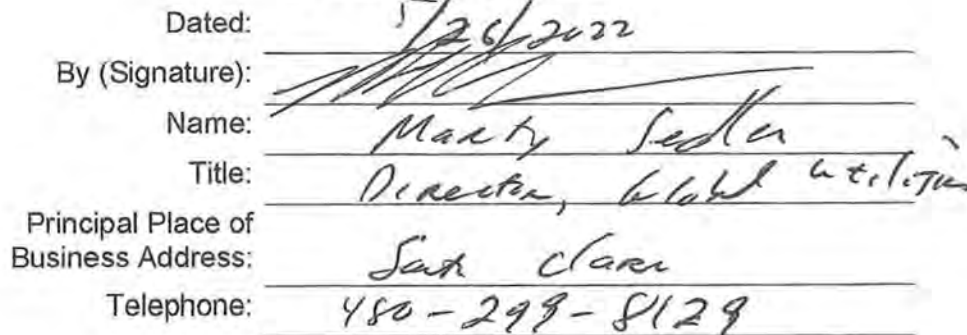 Dated: 5/26/2022
By (Signature):
Name: Marty Sedler
Title: Director, Global Utilities
Principal Place of
Business Address: Santa Clara
Telephone: 480-299-8129